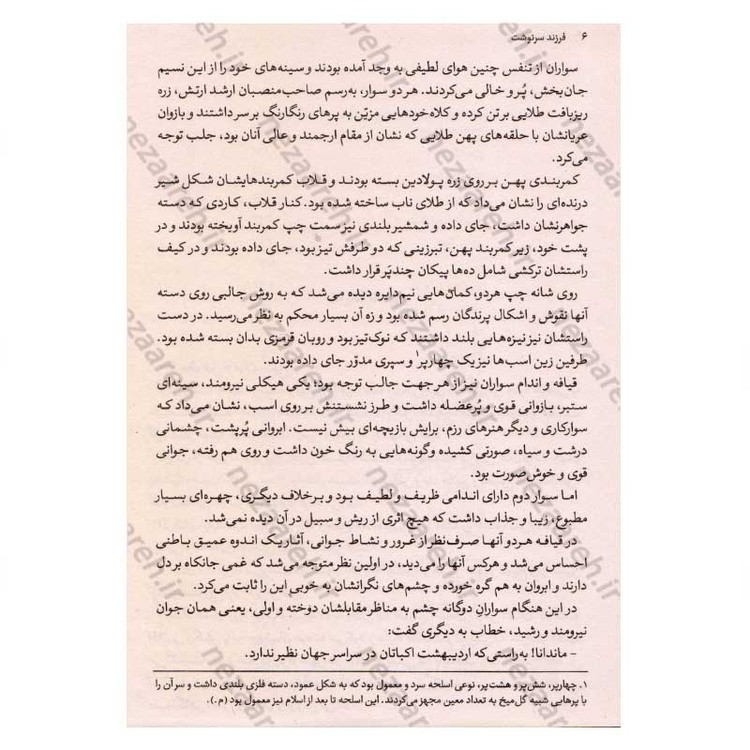 ۶ فرزند سرنوشت
سواران از تنفس چنین هوای لطیفی به وجد آمده بودند و سینه‌های خود را از این نسیم
جان‌بخش، پُر و خالی می‌کردند. هر دو سوار، به‌رسم صاحب‌منصبان ارشد ارتش، زره
زربافت طلایی بر تن کرده و کلاه‌خودهایی مزیّن به پرهای رنگارنگ بر سر داشتند و بازوان
عریانشان با حلقه‌های پهن طلایی که نشان از مقام ارجمند و عالی آنان بود، جلب توجه
می‌کرد.
کمربندی پهن بر روی زره پولادین بسته بودند و قلاب کمربندهایشان شکل شیر
درنده‌ای را نشان می‌داد که از طلای ناب ساخته شده بود. کنار قلاب، کاردی که دسته
جواهرنشان داشت، جای داده و شمشیر بلندی نیز سمت چپ کمربند آویخته بودند و در
پشت خود، زیر کمربند پهن، تبرزینی که دو طرفش تیز بود، جای داده بودند و در کیف
راستشان ترکشی شامل ده‌ها پیکان چندپَر قرار داشت.
روی شانه چپ هر دو، کمان‌هایی نیم‌دایره دیده می‌شد که به روش جالبی روی دسته
آنها نقوش و اشکال پرندگان رسم شده بود و زه آن بسیار محکم به نظر می‌رسید. در دست
راستشان نیز نیزه‌هایی بلند داشتند که نوک‌تیز بود و روبان قرمزی بدان بسته شده بود.
طرفین زین اسب‌ها نیز یک چهارپر۱ و سپری مدوّر جای داده بودند.
قیافه و اندام سواران نیز از هر جهت جالب توجه بود؛ یکی هیکلی نیرومند، سینه‌ای
ستبر، بازوانی قوی و پُرعضله داشت و طرز نشستنش بر روی اسب، نشان می‌داد که
سوارکاری و دیگر هنرهای رزم، برایش بازیچه‌ای بیش نیست. ابروانی پُرپشت، چشمانی
درشت و سیاه، صورتی کشیده و گونه‌هایی به رنگ خون داشت و روی هم رفته، جوانی
قوی و خوش‌صورت بود.
اما سوار دوم دارای اندامی ظریف و لطیف بود و برخلاف دیگری، چهره‌ای بسیار
مطبوع، زیبا و جذاب داشت که هیچ اثری از ریش و سبیل در آن دیده نمی‌شد.
در قیافه هر دو آنها صرف‌نظر از غرور و نشاط جوانی، آثار یک اندوه عمیق باطنی
احساس می‌شد و هرکس آنها را می‌دید، در اولین نظر متوجه می‌شد که غمی جانکاه بر دل
دارند و ابروان به هم گره خورده و چشم‌های نگرانشان به خوبی این را ثابت می‌کرد.
در این هنگام سوارانِ دوگانه چشم به مناظر مقابلشان دوخته و اولی، یعنی همان جوان
نیرومند و رشید، خطاب به دیگری گفت:
– ماندانا! به‌راستی که اردیبهشت اکباتان در سراسر جهان نظیر ندارد.
۱. چهارپر، شش‌پر و هشت‌پر، نوعی اسلحه سرد و معمول بود که به شکل عمود، دسته فلزی بلندی داشت و سر آن را
با پرهایی شبیه گل‌میخ به تعداد معین مجهز می‌کردند. این اسلحه تا بعد از اسلام نیز معمول بود (م.).
nezaareh.ir